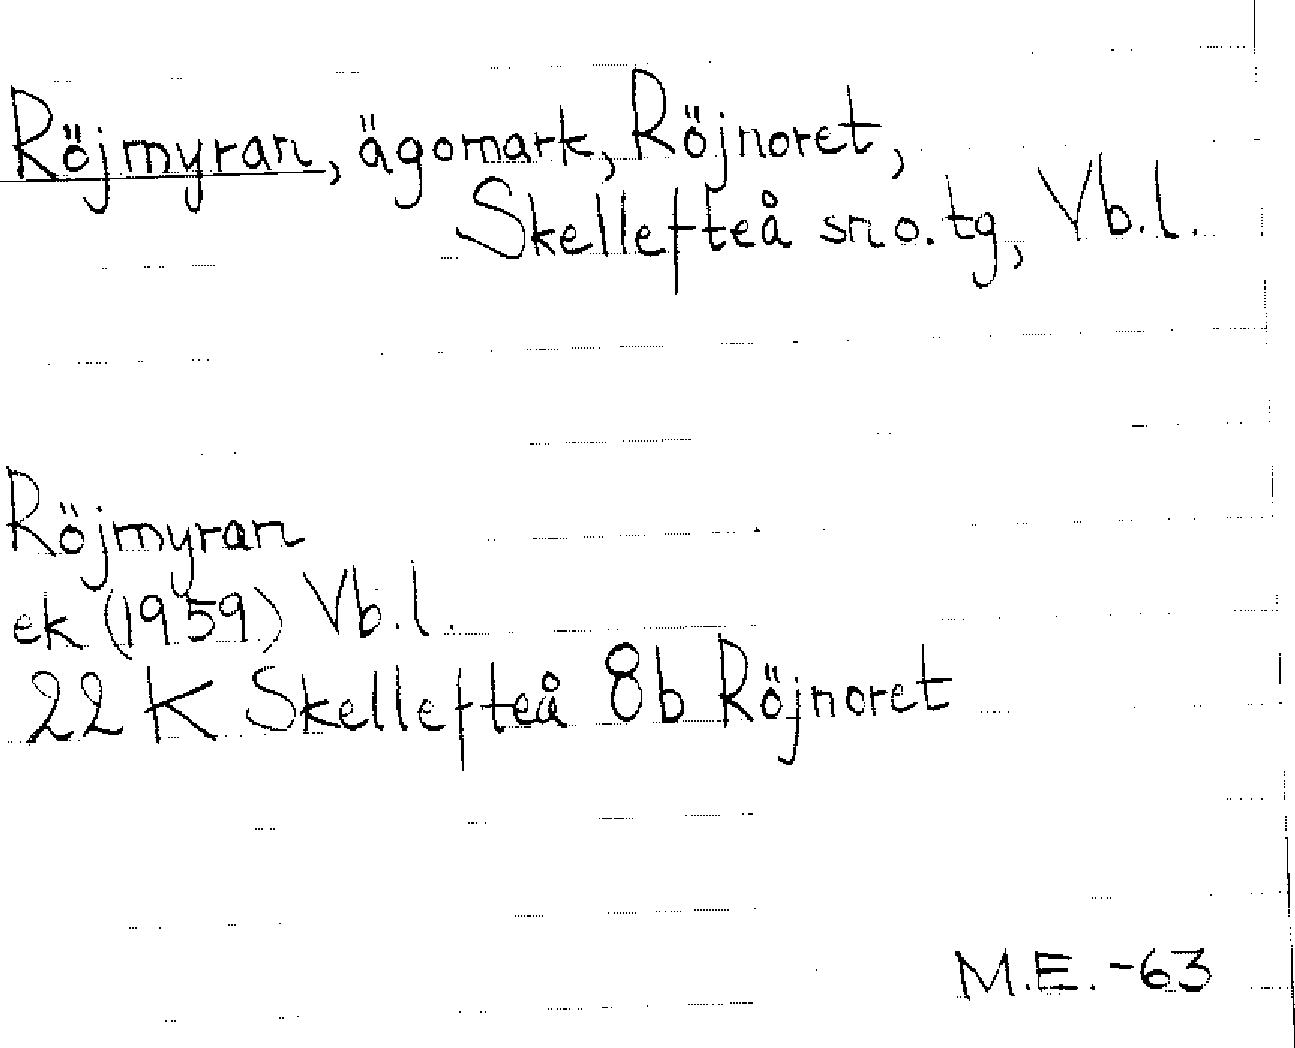 Röjmyran, ägomark, Röjnoret,
Skellefteå sn o. tg, Vb.l.
Röjmyran
ek (1959) Vb.l.
22 K Skellefteå 8b Röjnoret
M.E. -63